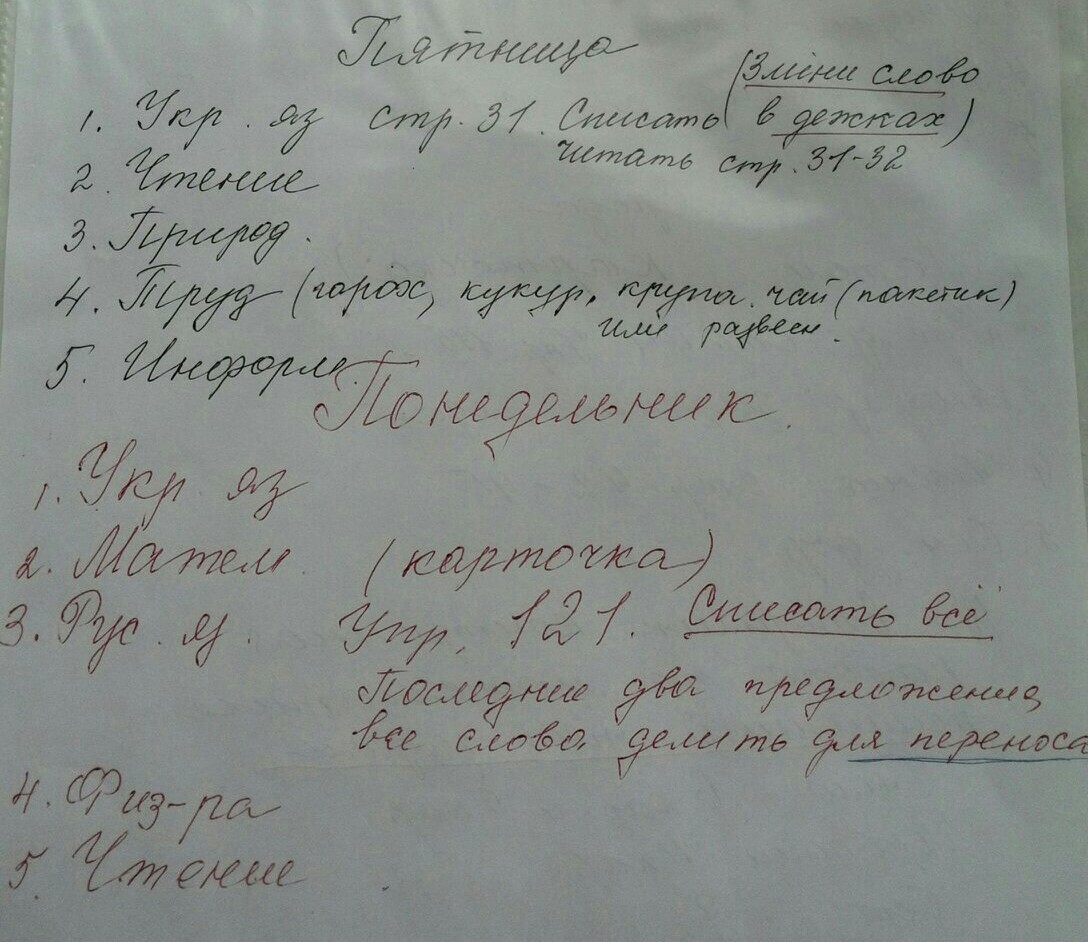 Пятница
(Зміни слово
1. Укр. яз стр. 31. Списать в дежках)
Читать стр. 31-32
2. Чтение
3. Природ.
4. Труд (горох, кукур, крупа. чай (пакетик)
или развесн.
5. Информ.
Понедельник.
1. Укр. яз
2. Матем. (карточка)
3. Рус. яз. Упр. 121. Списать всё
Последние два предложения,
все слова делить для переноса
4. Физ-ра
5. Чтение